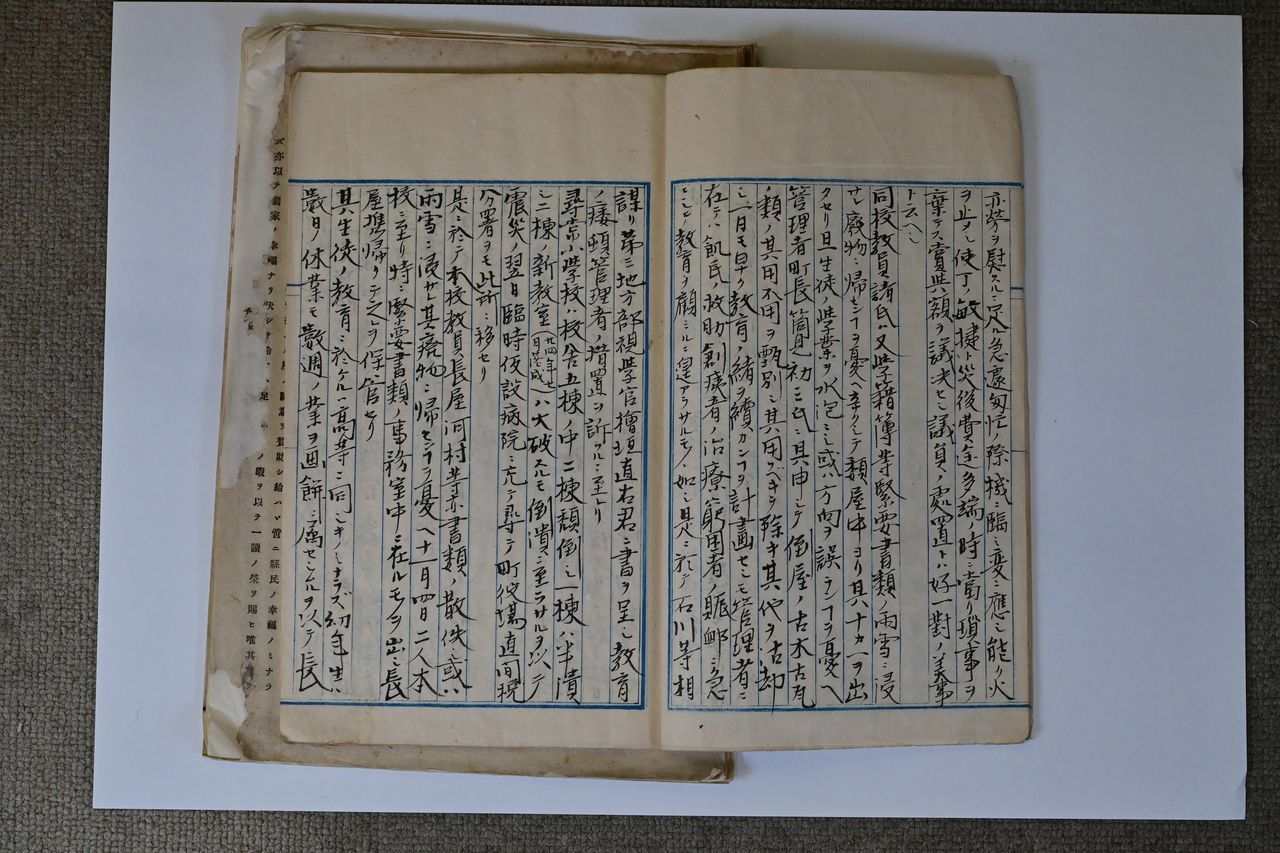 亦労ヲ慰スルニ足ル急遽匆忙ノ際機ニ臨ミ変ニ應シ能ク火
ヲ止メシ使丁ノ敏捷ト災後費途多端ノ時ニ当リ瑣事ヲ
棄テヽ賞与額ヲ議决セシ議員ノ處置トハ好一對ノ美事
ト云ヘシ
同校教員諸氏ハ又学籍簿等緊要書類ノ雨雪ニ浸
サレ廢物ニ帰センヿヲ憂ヘ辛シテ頽屋中ヨリ其八十カ一ヲ出
クセリ且生徒ノ学業ヲ水泡ニシ或ハ方向ヲ誤ランヿヲ憂ヘ
管理者町長筒見初二氏ニ具申シテ倒屋ノ古木古瓦
ノ類ノ其用不用ヲ甄別シ其用スベキヲ除キ其他ヲ沽却
シ一日モ早ク教育ノ緒ヲ續カンヿヲ計畫セシモ管理者ニ
在テハ飢民ノ救助創痍者ノ治療窮困者ノ賑卹ニ急
ニシテ教育ヲ顧ミルニ遑アラサルモノヽ如シ是ニ於テ石川等相
謀リ第三地方部視学官檜垣直右君ニ書ヲ呈シ教育
ノ痿頓管理者ノ措置ヲ訴フルニ至レリ
尋常小学校ハ校舎五棟ノ中二棟頽倒シ一棟ハ半潰
シ二棟ノ新教室廿四年七月落成ハ大破スルモ倒潰ニ至ラサルヲ以テ
震災ノ翌日臨時仮設病院ニ充テ尋テ町役場直間税
分署ヲモ此所ニ移セリ
是ニ於テ本校教員長屋河村等亦書類ノ散佚シ或ハ
雨雪ニ浸サレ其廃物ニ帰センヿヲ憂ヘ十一月四日二人本
校ニ至リ特ニ緊要書類ノ事務室中ニ在ルモノヲ出シ長
屋携帰リテ之ヲ保管セリ
其生徒ノ教育ニ於ケル高等ニ同シキノミナラズ幼年生ハ
數日ノ休業モ數週ノ業ヲ画餅ニ属セシムルヲ以テ長
亦以テ國家ノ幸福ナリ
給ハヾ啻ニ縣民ノ幸福ノミナラ
ノ暇ヲ以テ一讀ノ榮ヲ賜ヒ